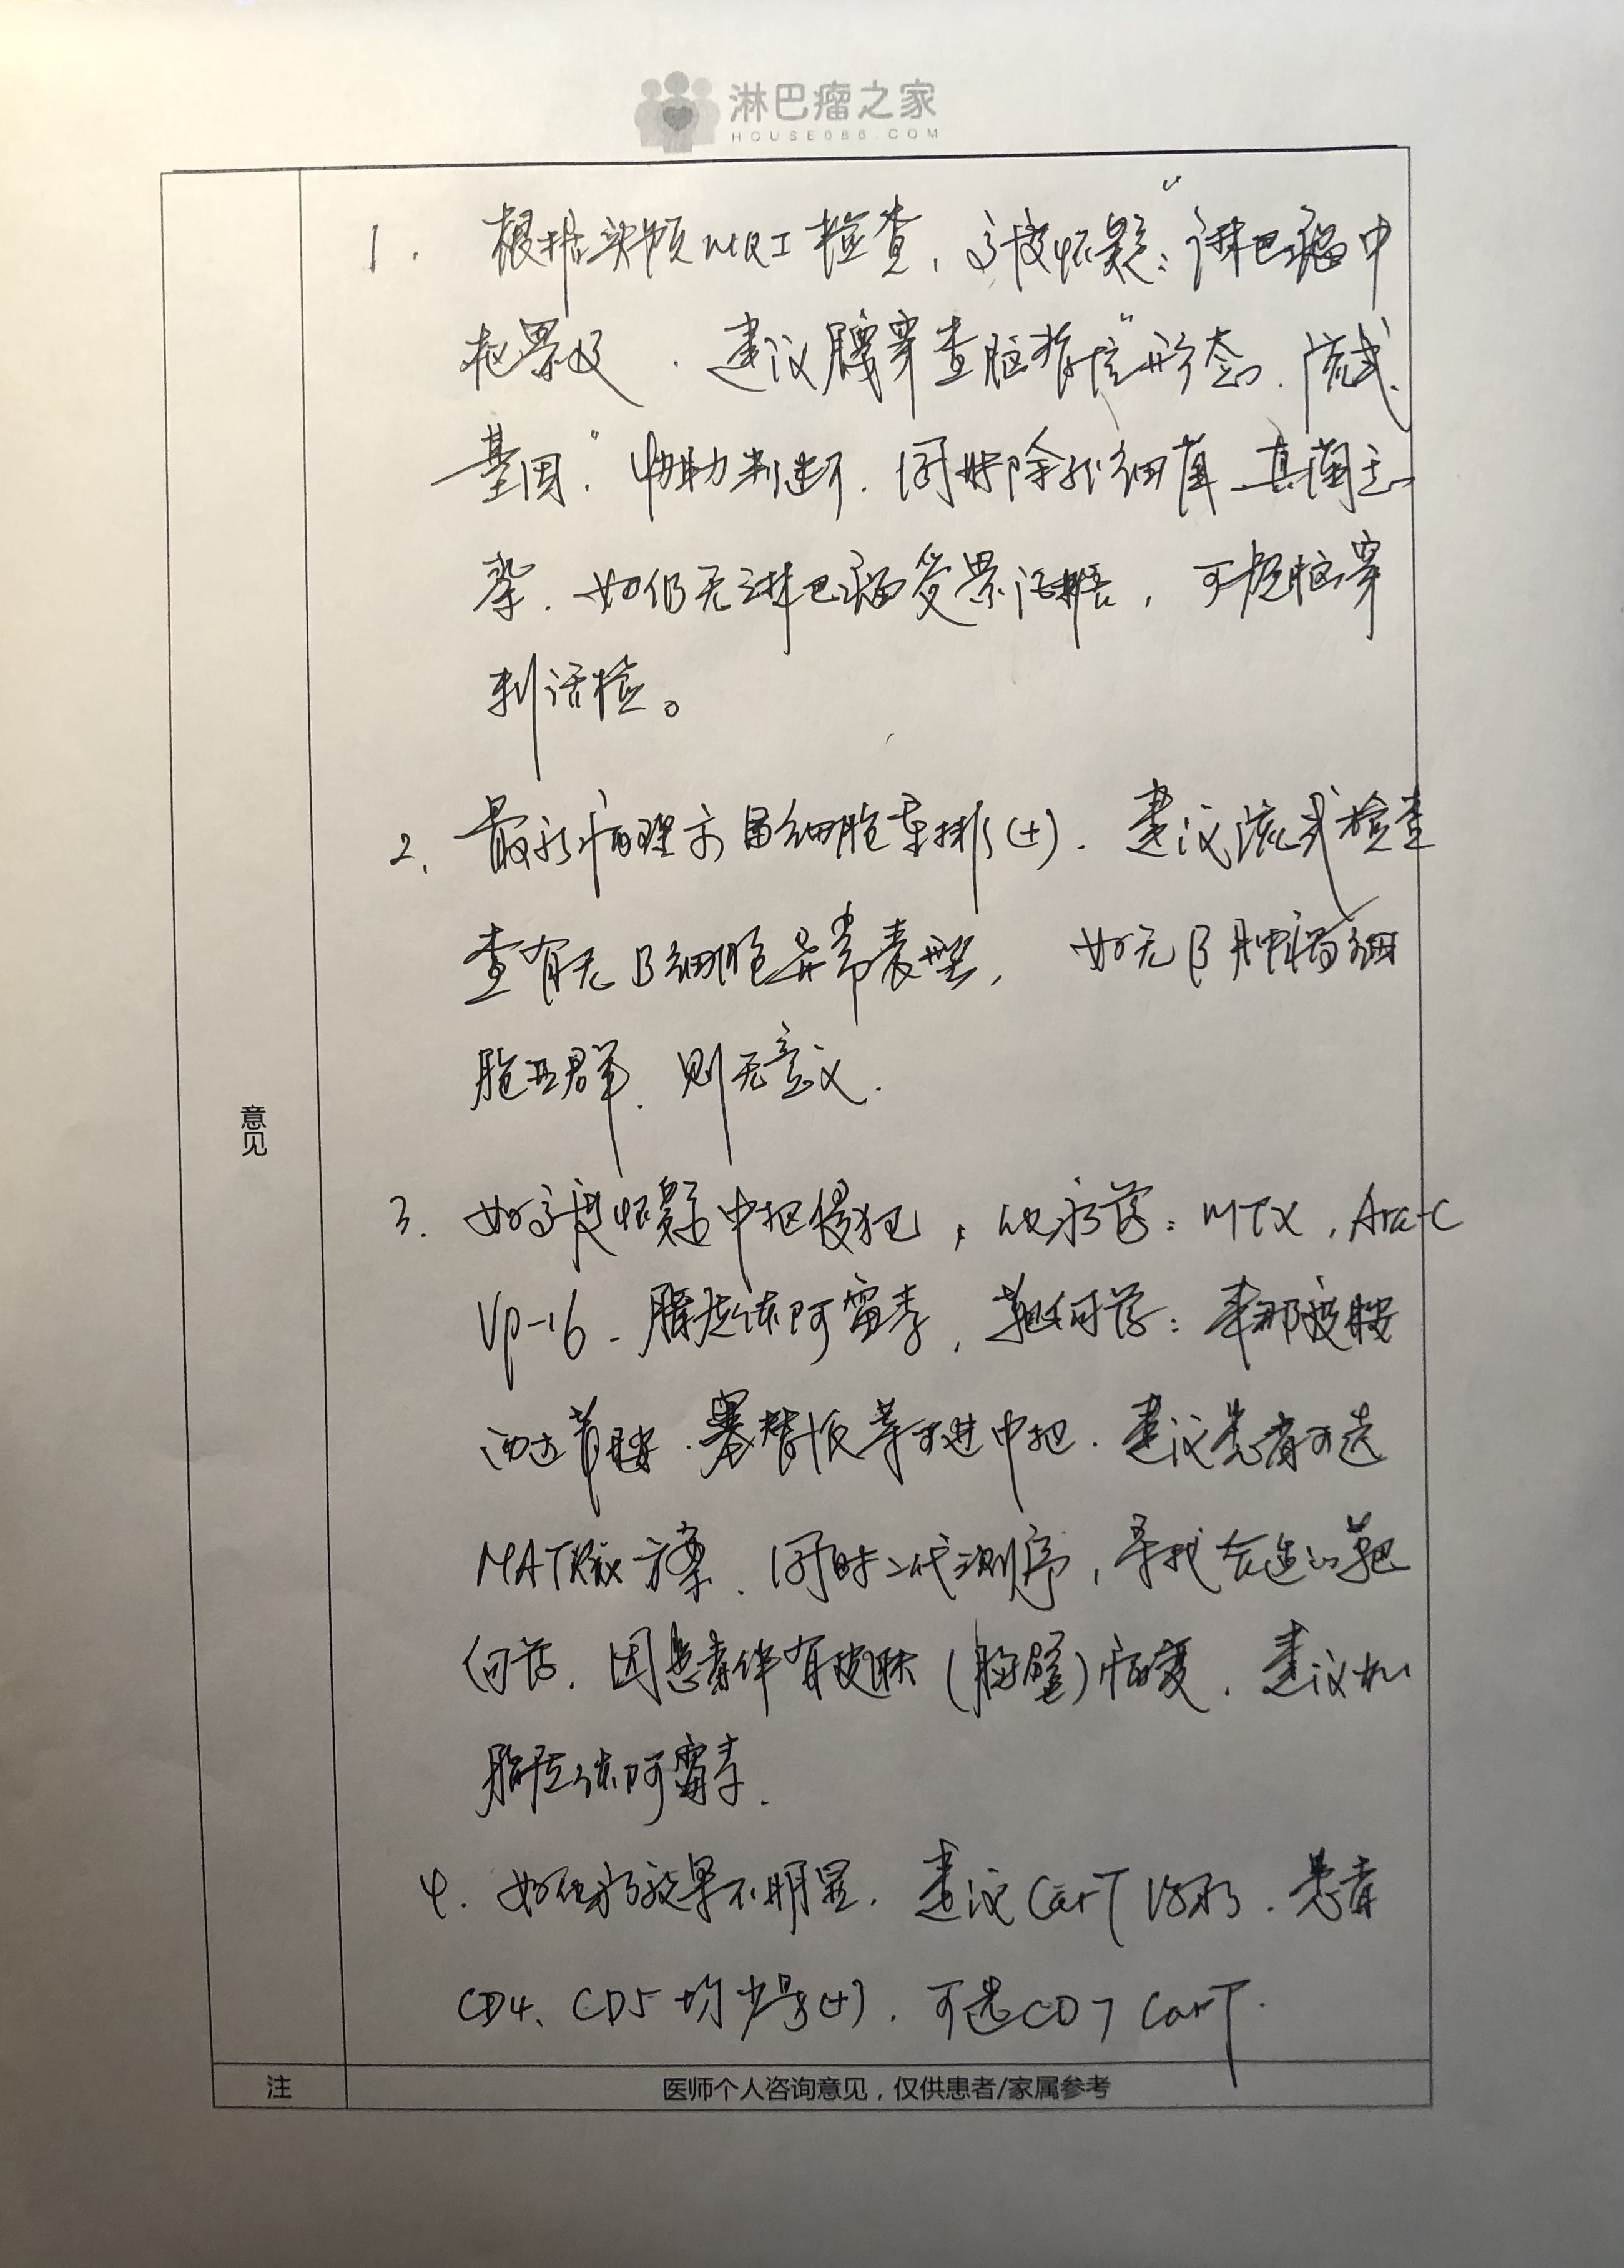 淋巴瘤之家
HOUSE086.COM
1. 根据头颅MRI检查，高度怀疑：“淋巴瘤中
枢累及”，建议腰穿查脑脊液“形态、流式、
基因”，协助判断，同时排除外细菌、真菌感
染，如仍无淋巴瘤受累证据，可提脑穿
刺活检。
2. 最新病理示B细胞重排(+)，建议流式检查
查有无B细胞异常表型，如无B肿瘤细
胞亚群，则无意义.
3. 如高度怀疑中枢侵犯，化疗药：MTX，Ara-C
Vp-16、脂质体阿霉素，靶向药：来那度胺
西达苯胺、塞替派等可进中枢. 建议患者可选
MATRix方案，同时二代测序，寻找合适的靶
向药，因患者伴有皮肤(胸壁)病变，建议加
脂质体阿霉素.
4. 如化疗效果不明显，建议CarT治疗，患者
CD4、CD5均少量(+)，可选CD7 CarT.
意见
注 医师个人咨询意见，仅供患者/家属参考